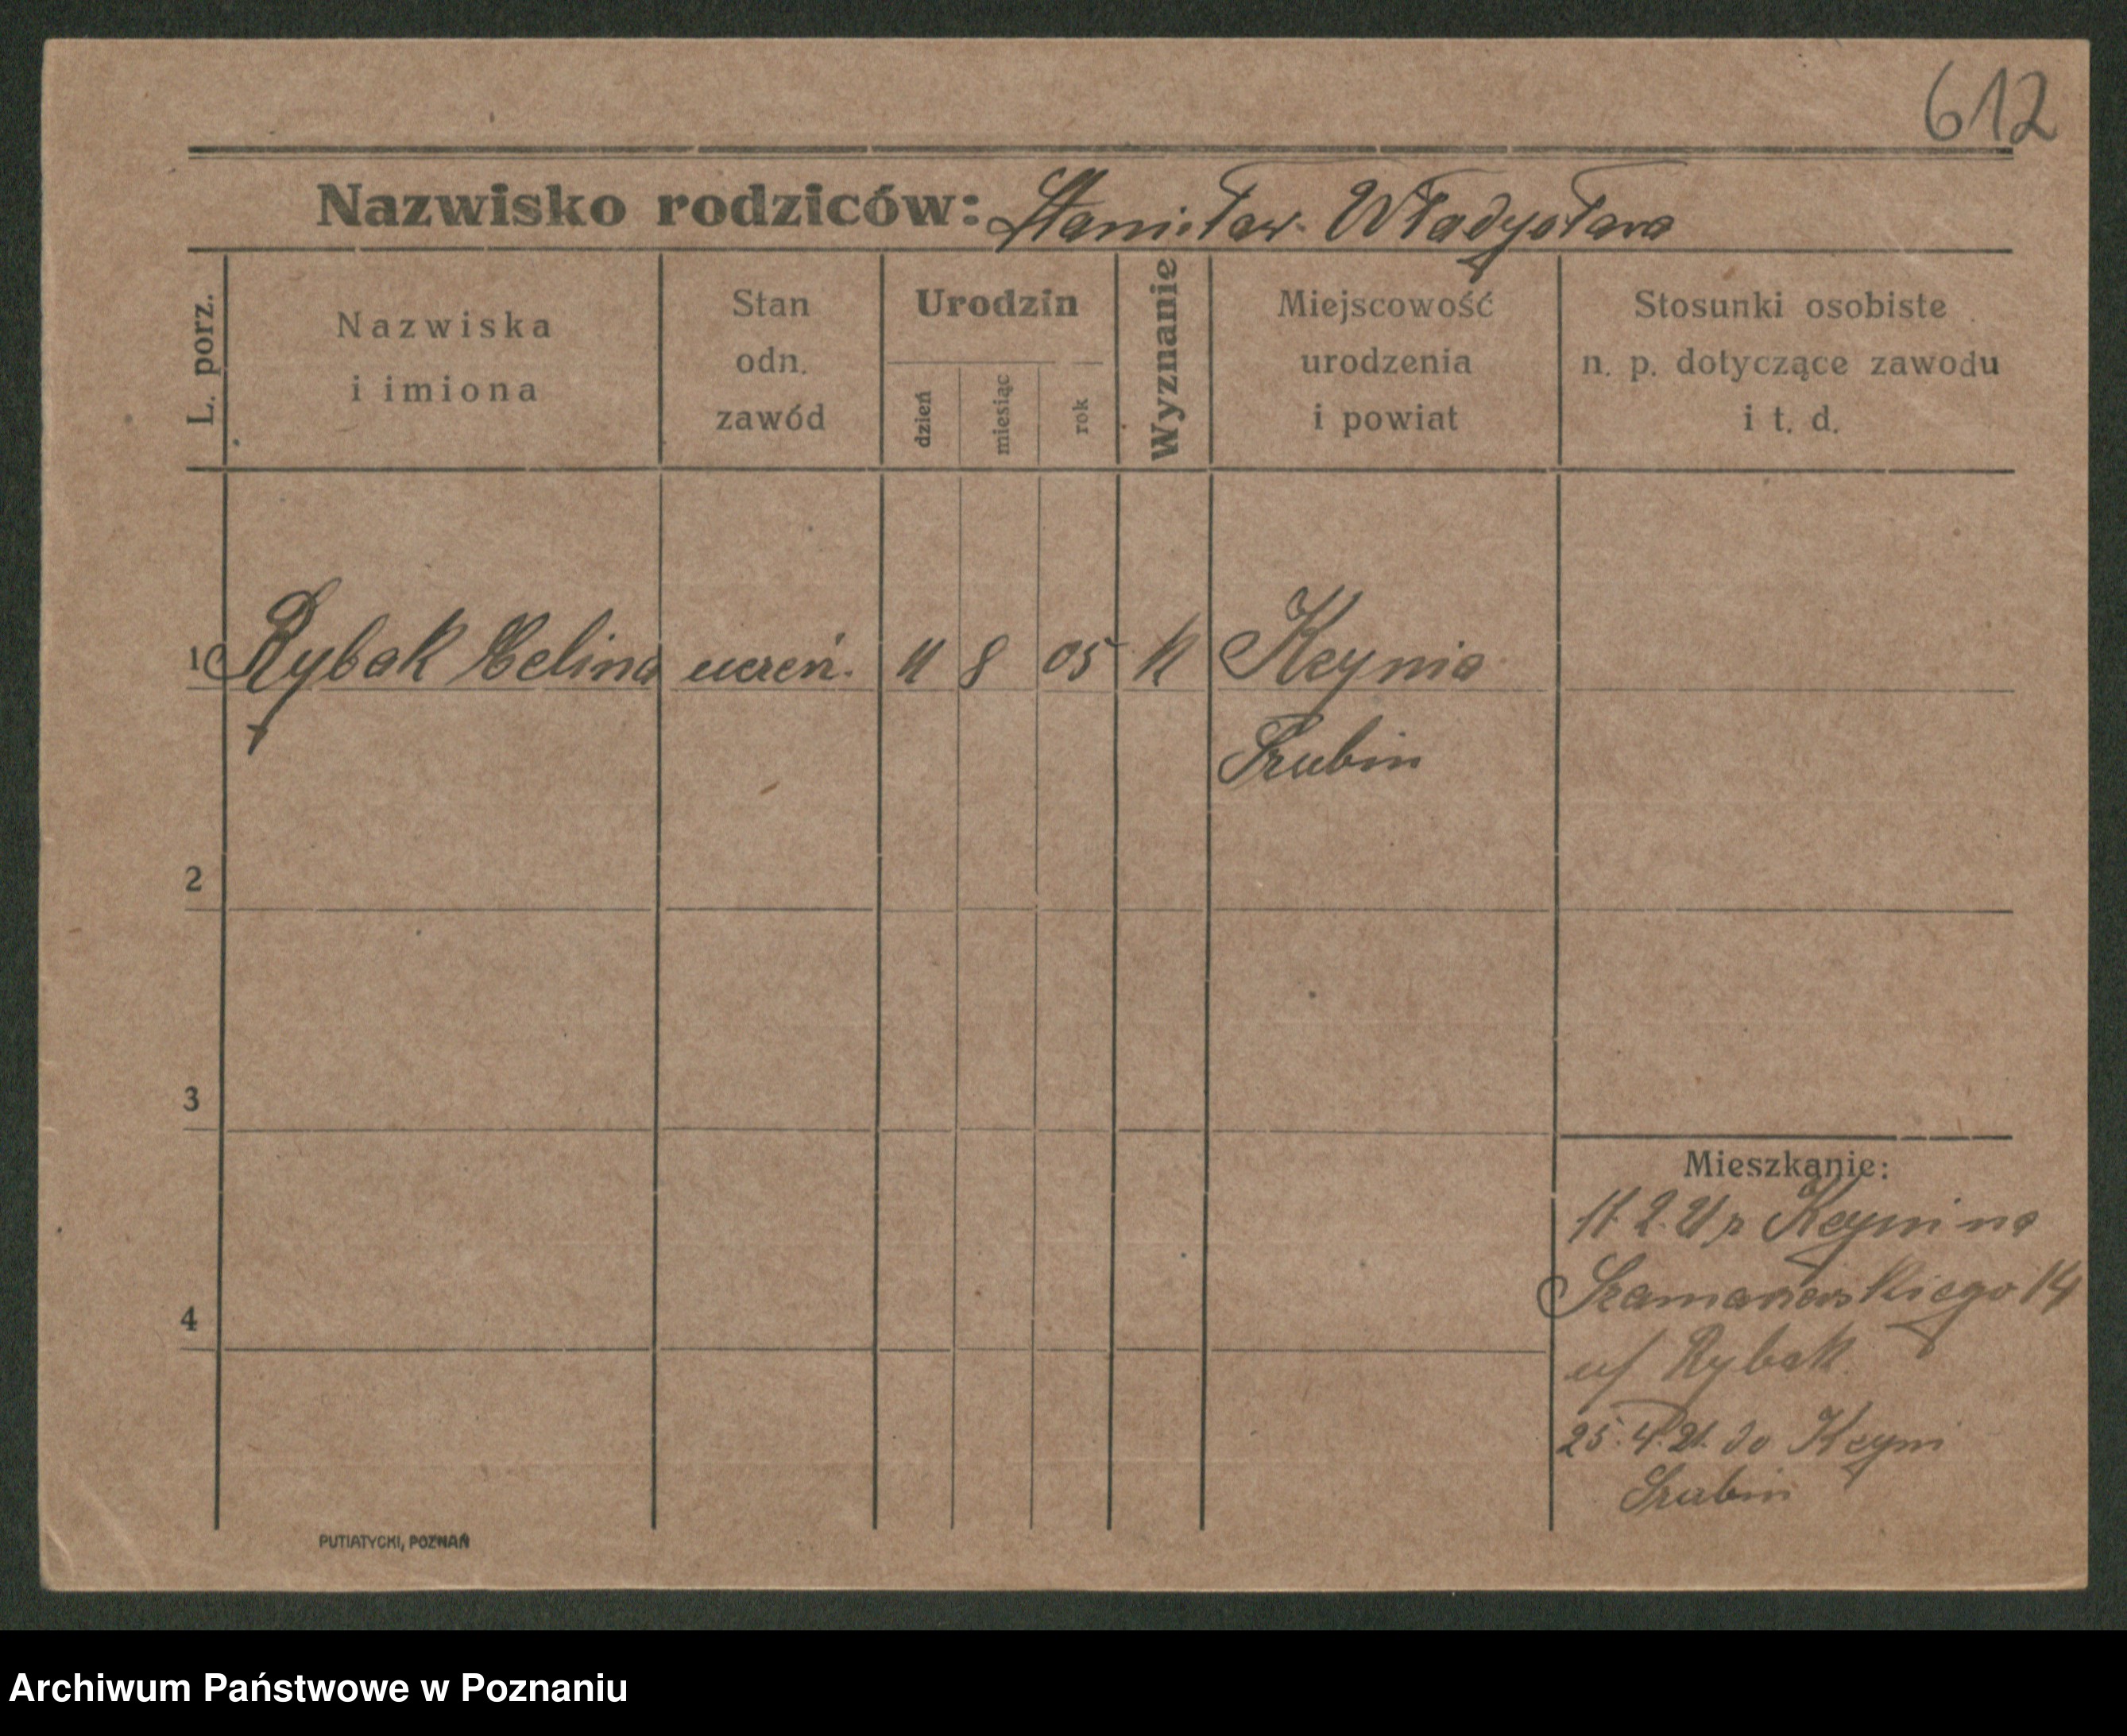 612
Nazwisko rodziców: Stanisław Władysława
L. porz.
Nazwiska
i imiona
Stan
odn.
zawód
Urodzin
dzień
miesiąc
rok
Wyznanie
Miejscowość
urodzenia
i powiat
Stosunki osobiste
n. p. dotyczące zawodu
i t. d.
1 Rybak uczeń. 11 8 05 K Kcynia
Szubin
2
3
4
Mieszkanie:
11.2.21 z Kcyni na
14
u/ Rybak
25.4.21. do Kcyni
Szubin
PUTIATYCKI, POZNAŃ
Archiwum Państwowe w Poznaniu